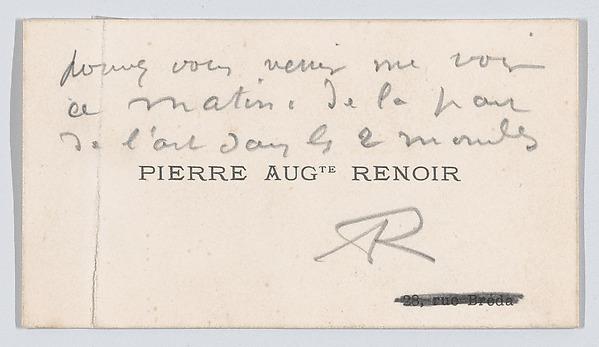 pouvez vous venir me voir
ce matin. de la part
de l'art dans les 2 mondes
PIERRE AUGTE RENOIR
AR
28, rue Bréda